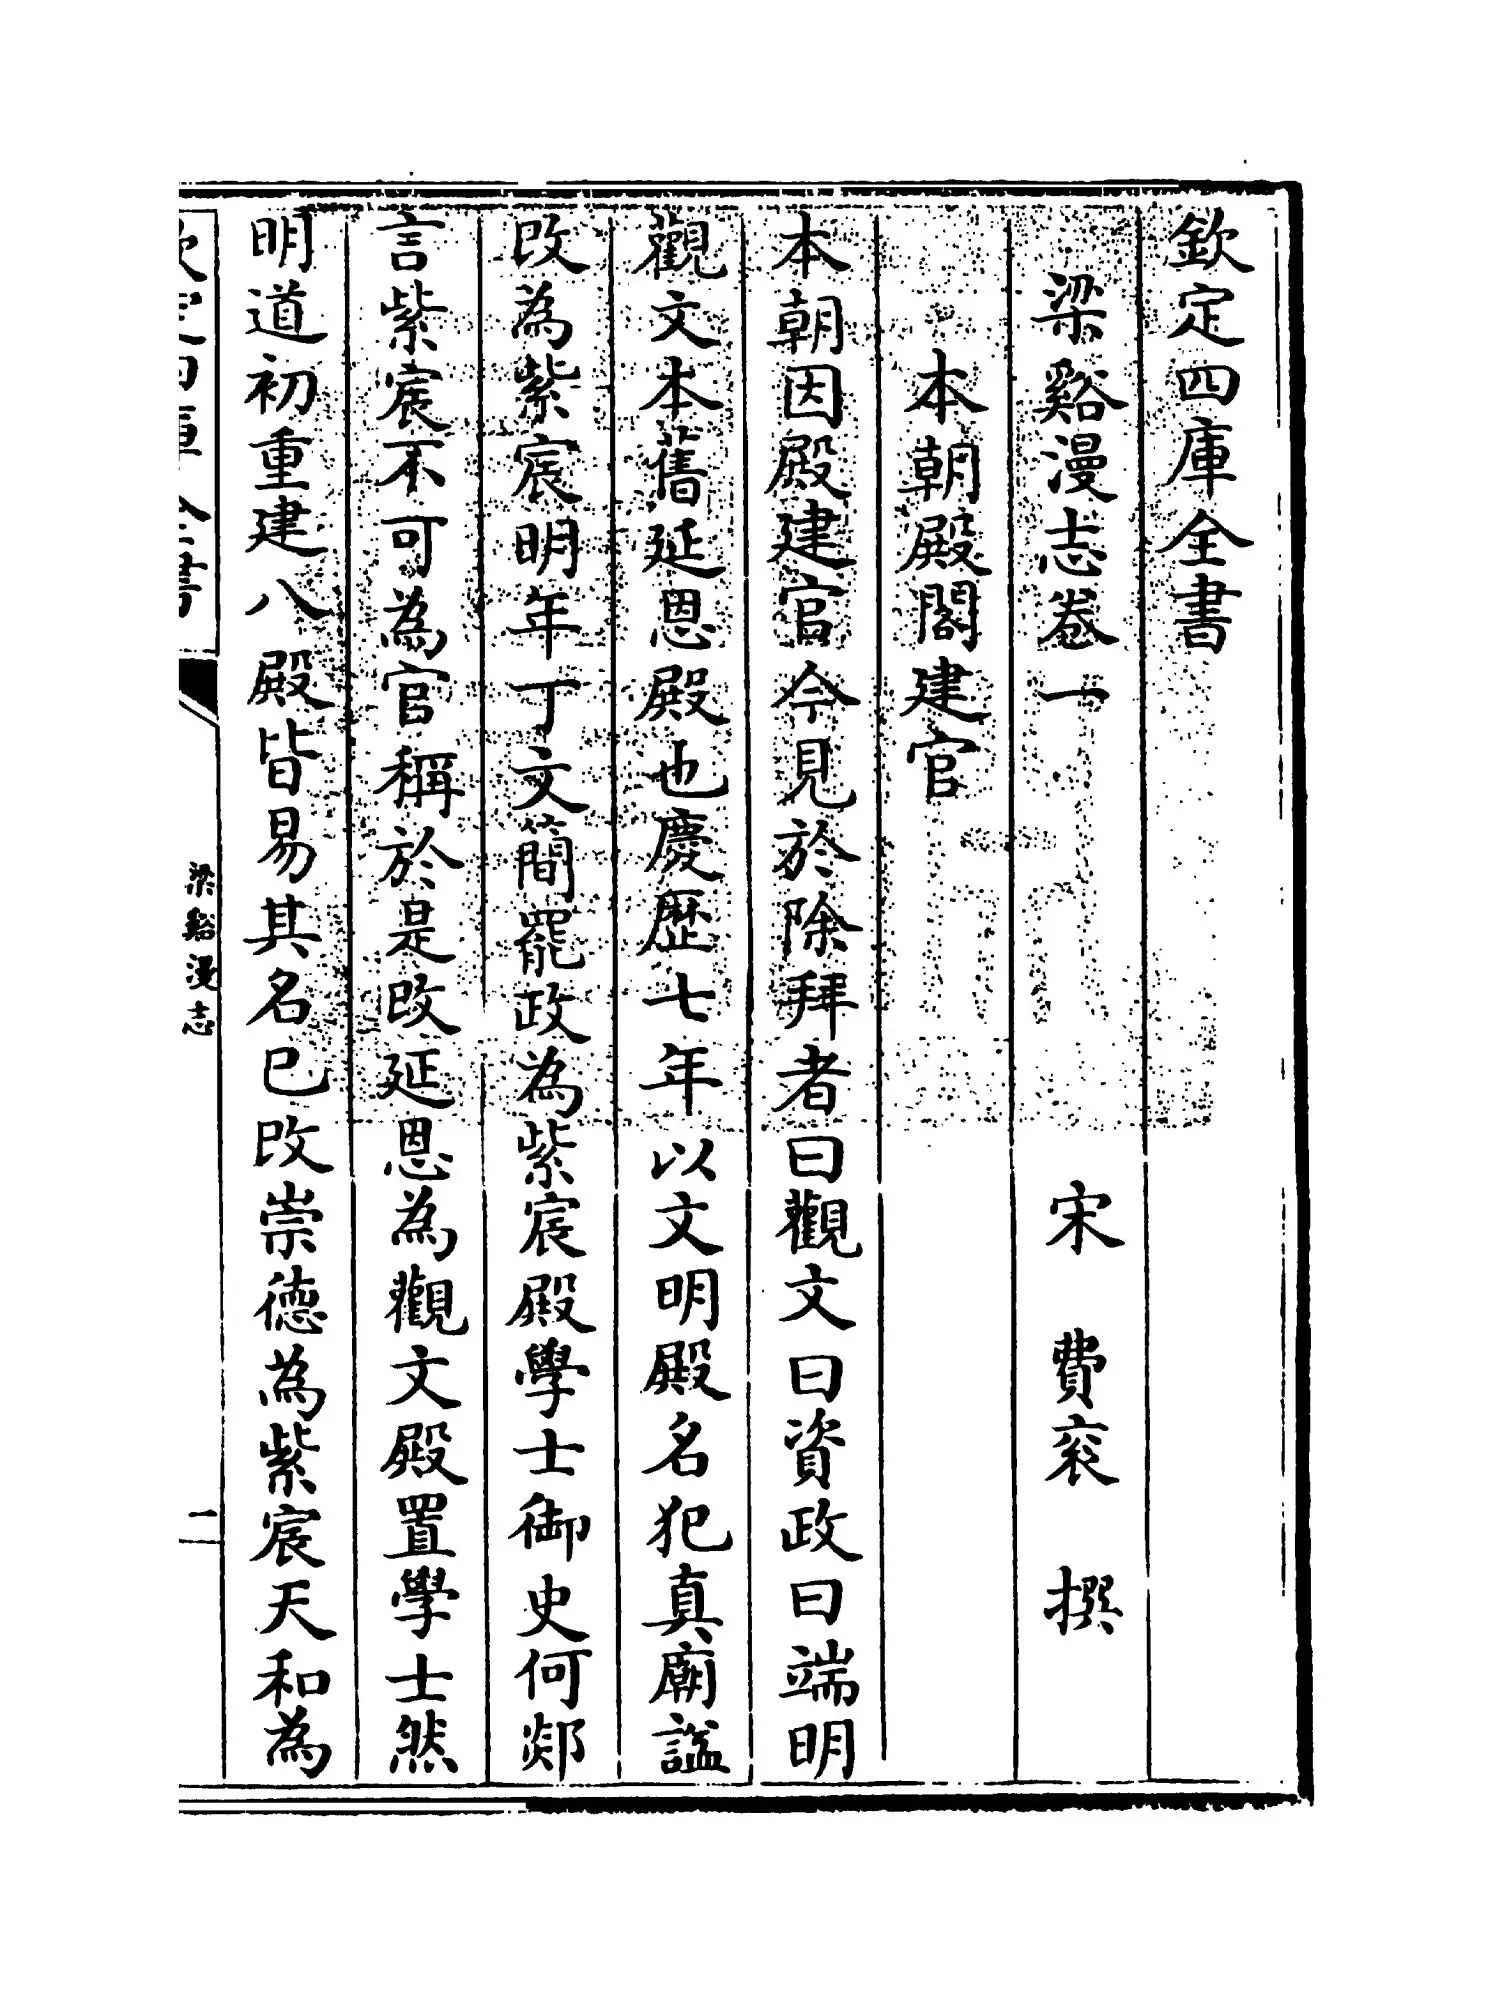 欽定四庫全書
梁谿漫志卷一　　宋　費袞　撰
本朝殿閣建官
本朝因殿建官今見於除拜者曰觀文曰資政曰端明
觀文本舊延恩殿也慶歴七年以文明殿名犯真廟諡
改為紫宸明年丁文簡罷政為紫宸殿學士御史何郯
言紫宸不可為官稱於是改延恩為觀文殿置學士然
明道初重建八殿皆易其名已改崇德為紫宸天和為
梁谿漫志
一